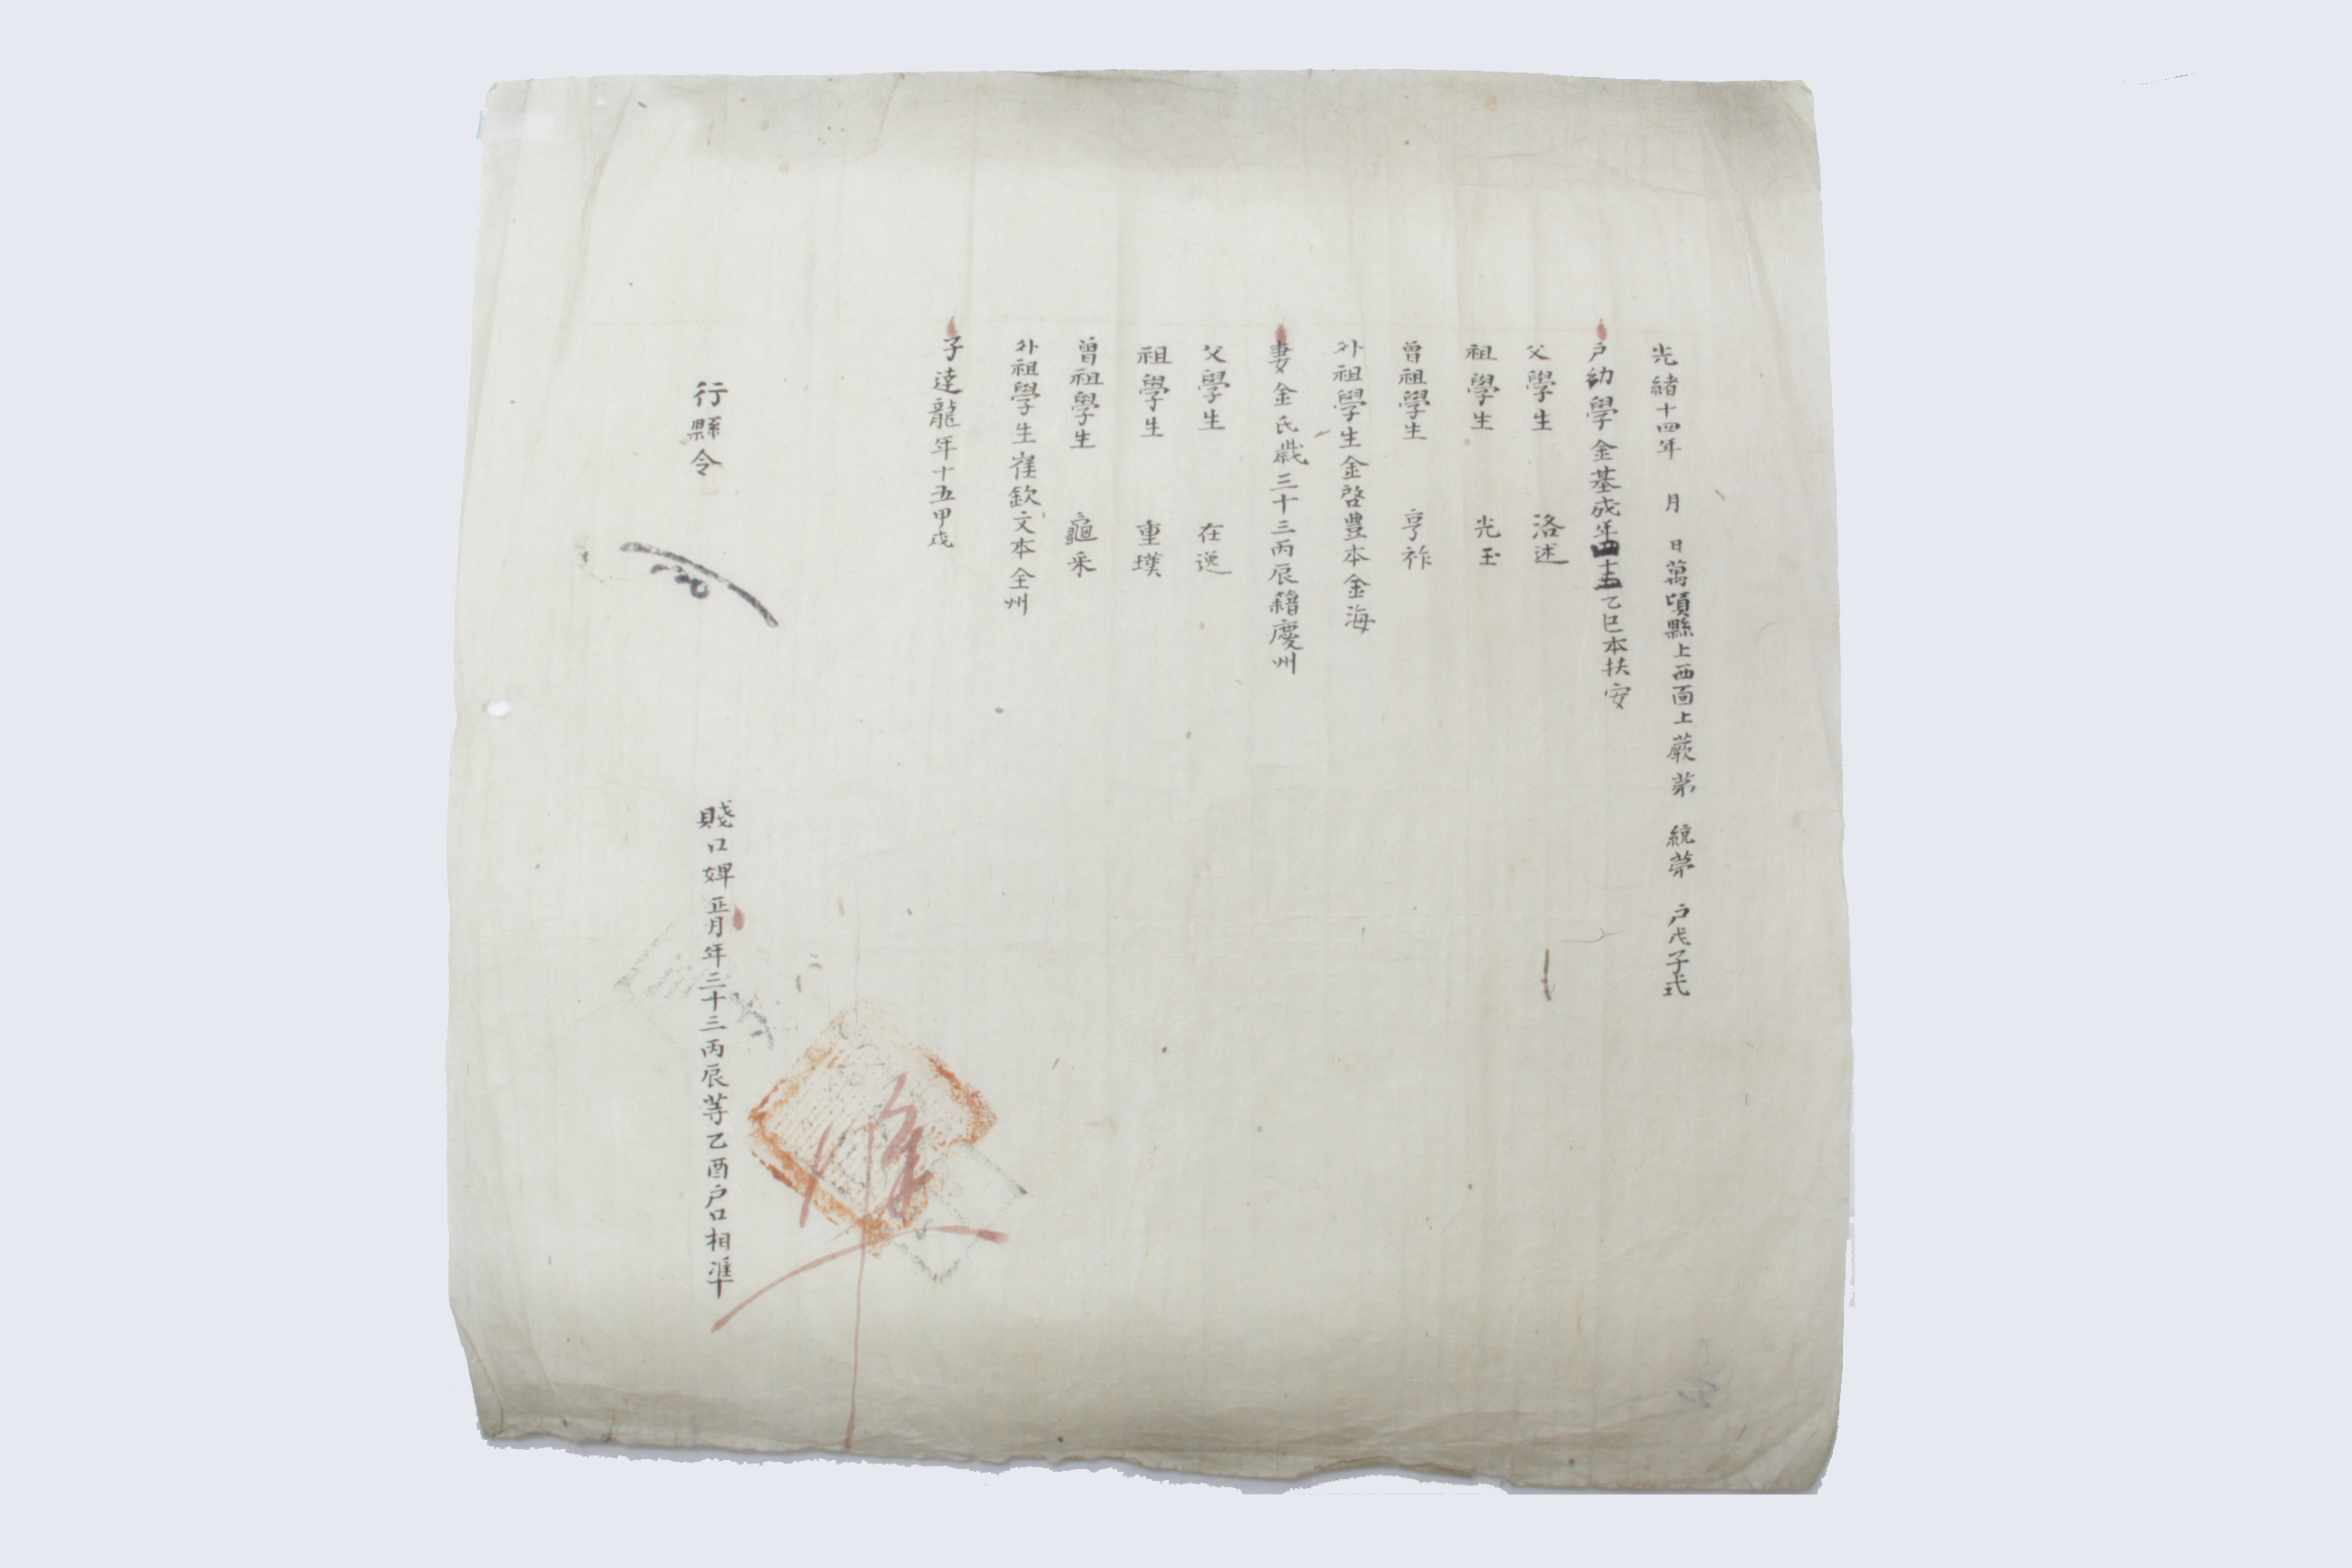 光緖十四年 月 日萬頃縣上西面上蕨第 統第 戶戊子式
戶幼學金基成年四十五乙巳本扶安
父學生 洛述
祖學生 光玉
曾祖學生 亨祚
外祖學生金啓豊本金海
妻金氏歲三十三丙辰籍慶州
父學生 在逸
祖學生 重璞
曾祖學生 龜采
外祖學生崔欽文本全州
子達龍年十五甲戌
行縣令
賤口婢正月年三十三丙辰等乙酉戶口相準
準